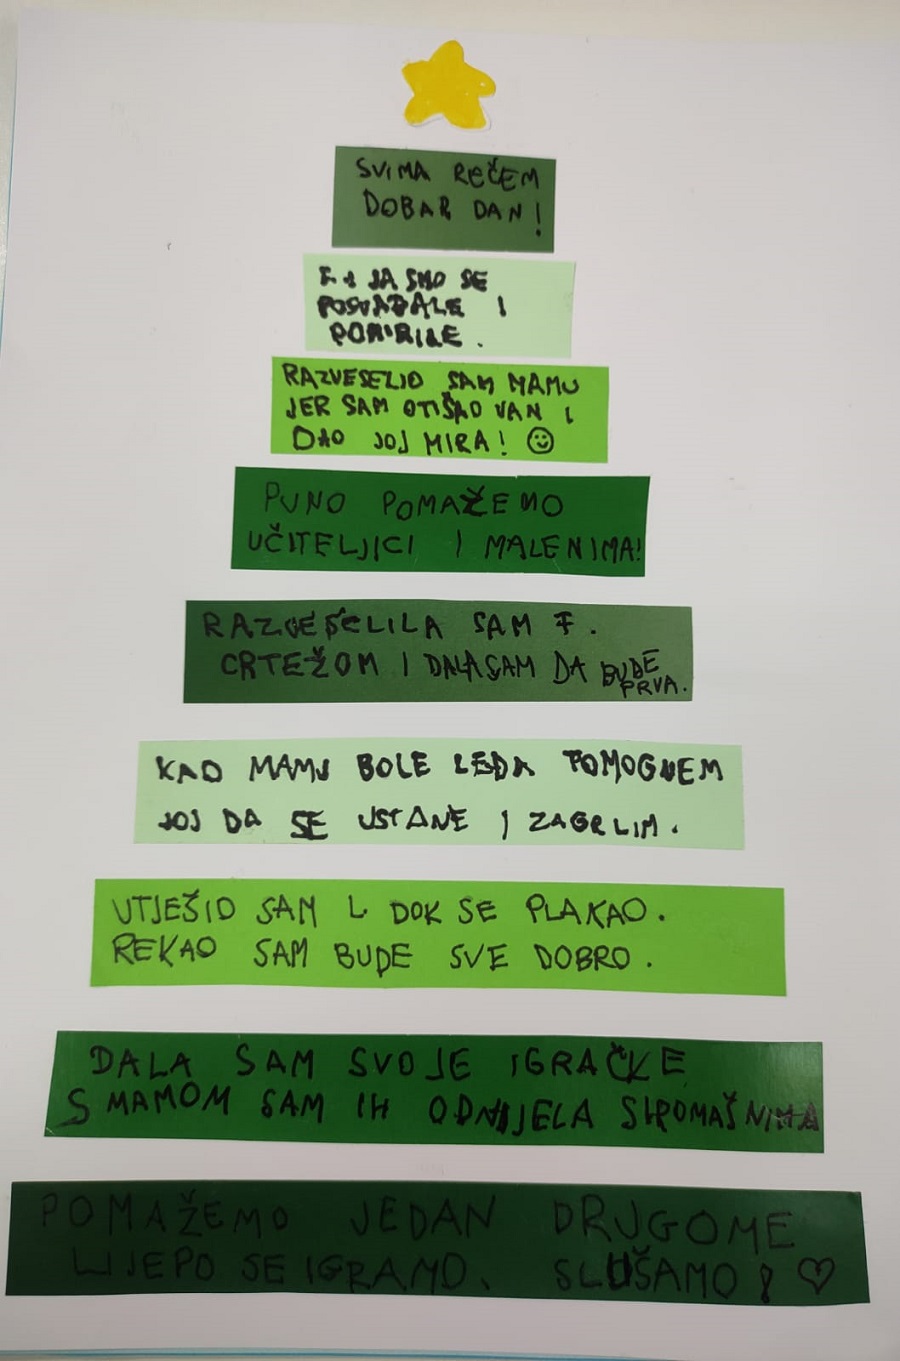 SVIMA REČEM
DOBAR DAN!
F. I JA SMO SE
POSVAĐALE I
POMIRILE.
RAZVESELIO SAM MAMU
JER SAM OTIŠAO VAN I
DAO JOJ MIRA!
PUNO POMAŽEMO
UČITELJICI I MALENIMA!
RAZVESELILA SAM F.
CRTEŽOM I DALA SAM DA BUDE
PRVA.
KAD MAMU BOLE LEĐA POMOGNEM
JOJ DA SE USTANE I ZAGRLIM.
UTJEŠIO SAM L DOK SE PLAKAO.
REKAO SAM BUDE SVE DOBRO.
DALA SAM SVOJE IGRAČKE
S MAMOM SAM IH ODNIJELA SIROMAŠNIMA
POMAŽEMO JEDAN DRUGOME
LIJEPO SE IGRAMO. SLUŠAMO!